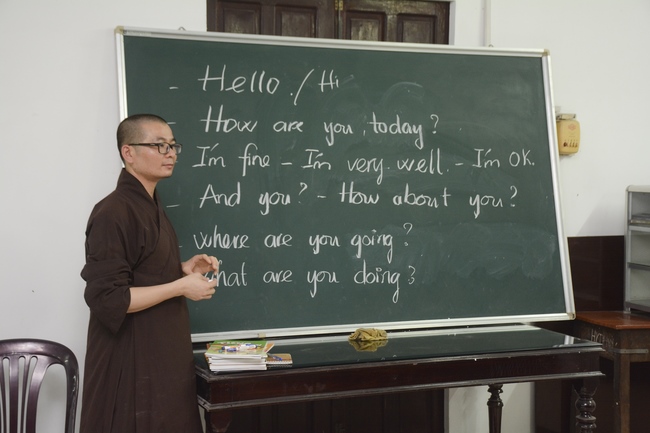 - Hello./Hi
- How are you, today?
I'm fine - I'm very well. - I'm OK.
- And you? - How about you?
- where are you going?
what are you doing?